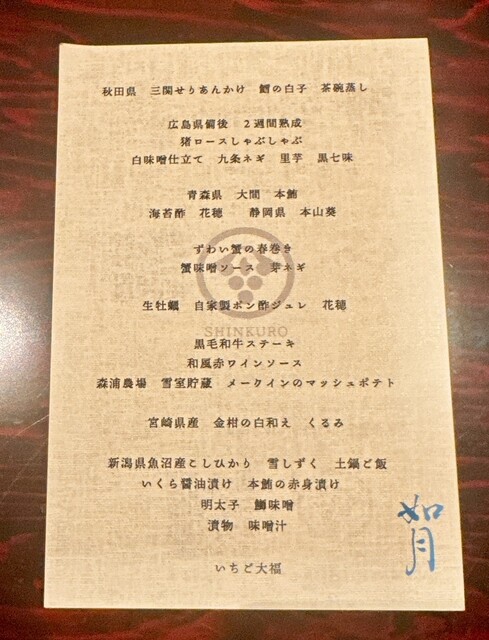 秋田県　三関せりあんかけ　鱈の白子　茶碗蒸し
広島県備後　２週間熟成
猪ロースしゃぶしゃぶ
白味噌仕立て　九条ネギ　里芋　黒七味
青森県　大間　本鮪
海苔酢　花穂　静岡県　本山葵
ずわい蟹の春巻き
蟹味噌ソース　芽ネギ
生牡蠣　自家製ポン酢ジュレ　花穂
SHINKURO
黒毛和牛ステーキ
和風赤ワインソース
森浦農場　雪室貯蔵　メークインのマッシュポテト
宮崎県産　金柑の白和え　くるみ
新潟県魚沼産こしひかり　雪しずく　土鍋ご飯
いくら醤油漬け　本鮪の赤身漬け
明太子　鰤味噌
漬物　味噌汁
いちご大福
如月